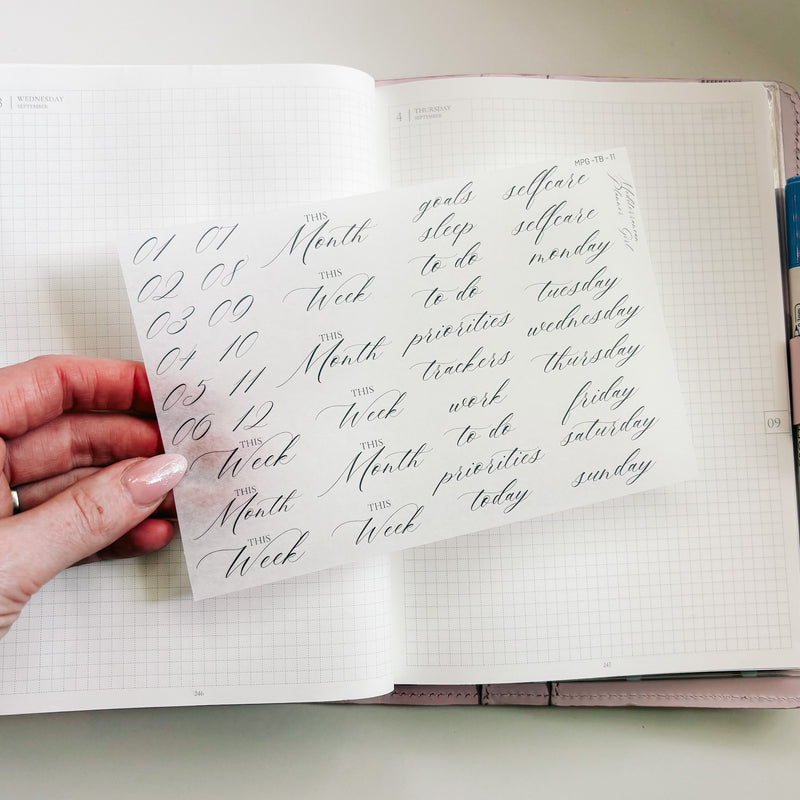 WEDNESDAY
SEPTEMBER
4 THURSDAY
SEPTEMBER
MPG-TB-11
Planner Girl
01 07
02 08
03 09
04 10
05 11
06 12
THIS
Week
THIS
Month
THIS
Week
THIS
Month
THIS
Week
THIS
Month
THIS
Week
THIS
Month
THIS
Week
goals
sleep
to do
to do
priorities
trackers
work
to do
priorities
today
selfcare
selfcare
monday
tuesday
wednesday
thursday
friday
saturday
sunday
09
246